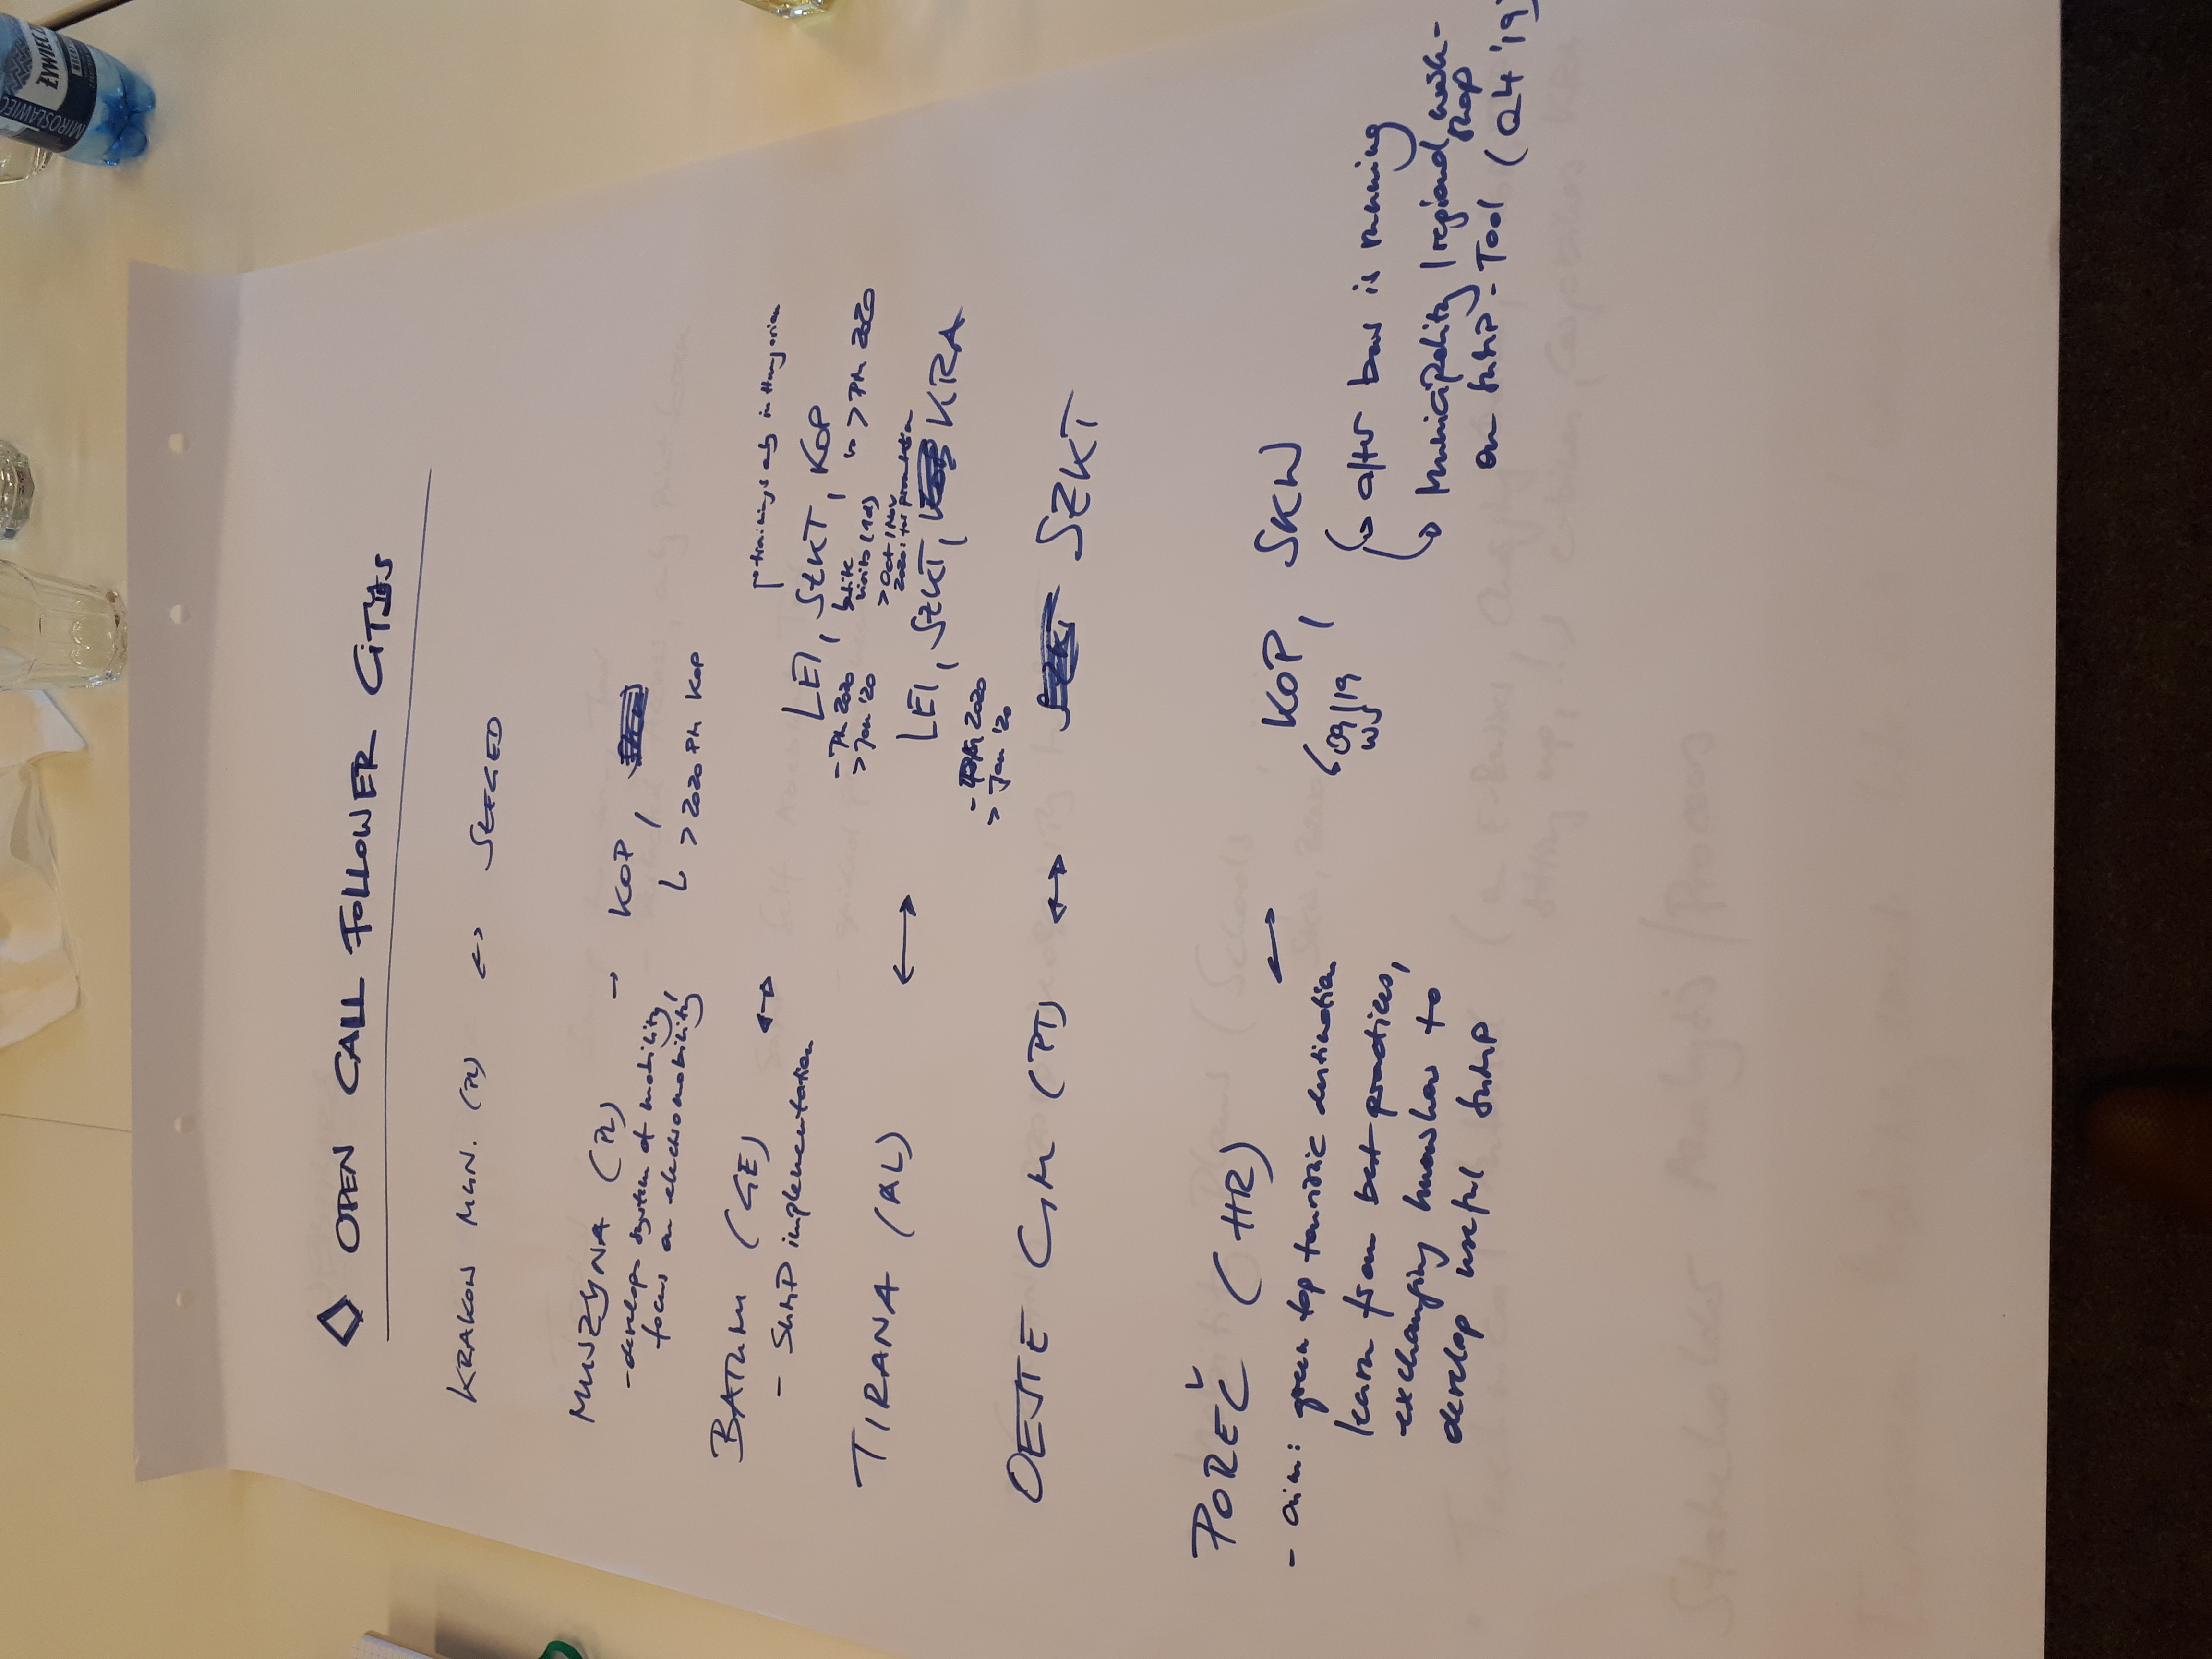 OPEN CALL FOLLOWER CITIES
KRAKOW MUN. (PL) <-> SZEGED
MUSZYNA (PL) → KOP,
- develop system of mobility,
focus on electromobility,
> 2020 PM KOP
trainings only in Hungarian
BATUMI (GE) ↔ LEI, SZKT, KOP
- SUMP implementation
- PM 2020
> Jan '20
site
visits (1d)
> Oct / Nov
2020:
> PM 2020
TIRANA (AL) ↔ LEI, SZKT, KRA
2020
> Jan '20
OESTE CIM (PT) ↔ SZKT
POREČ (HR) ↔ KOP, SKW
- aim: green top touristic destination
learn from best practices,
exchanging knowhow to
develop useful SUMP
09/19
WS
after bus is running
Municipality / regional work-
shop
on SUMP-Tool (Q4 '19)
ŻYWIEC
MIROSŁAWIEC